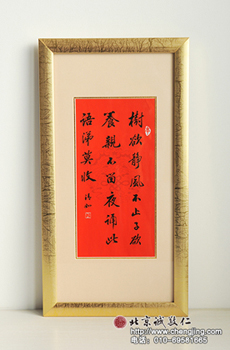 樹欲静風不止子欲
養親不留夜諦此
语涕莫收
清如
北京诚敬仁
www.chengjing.com
电话: 010-69561665